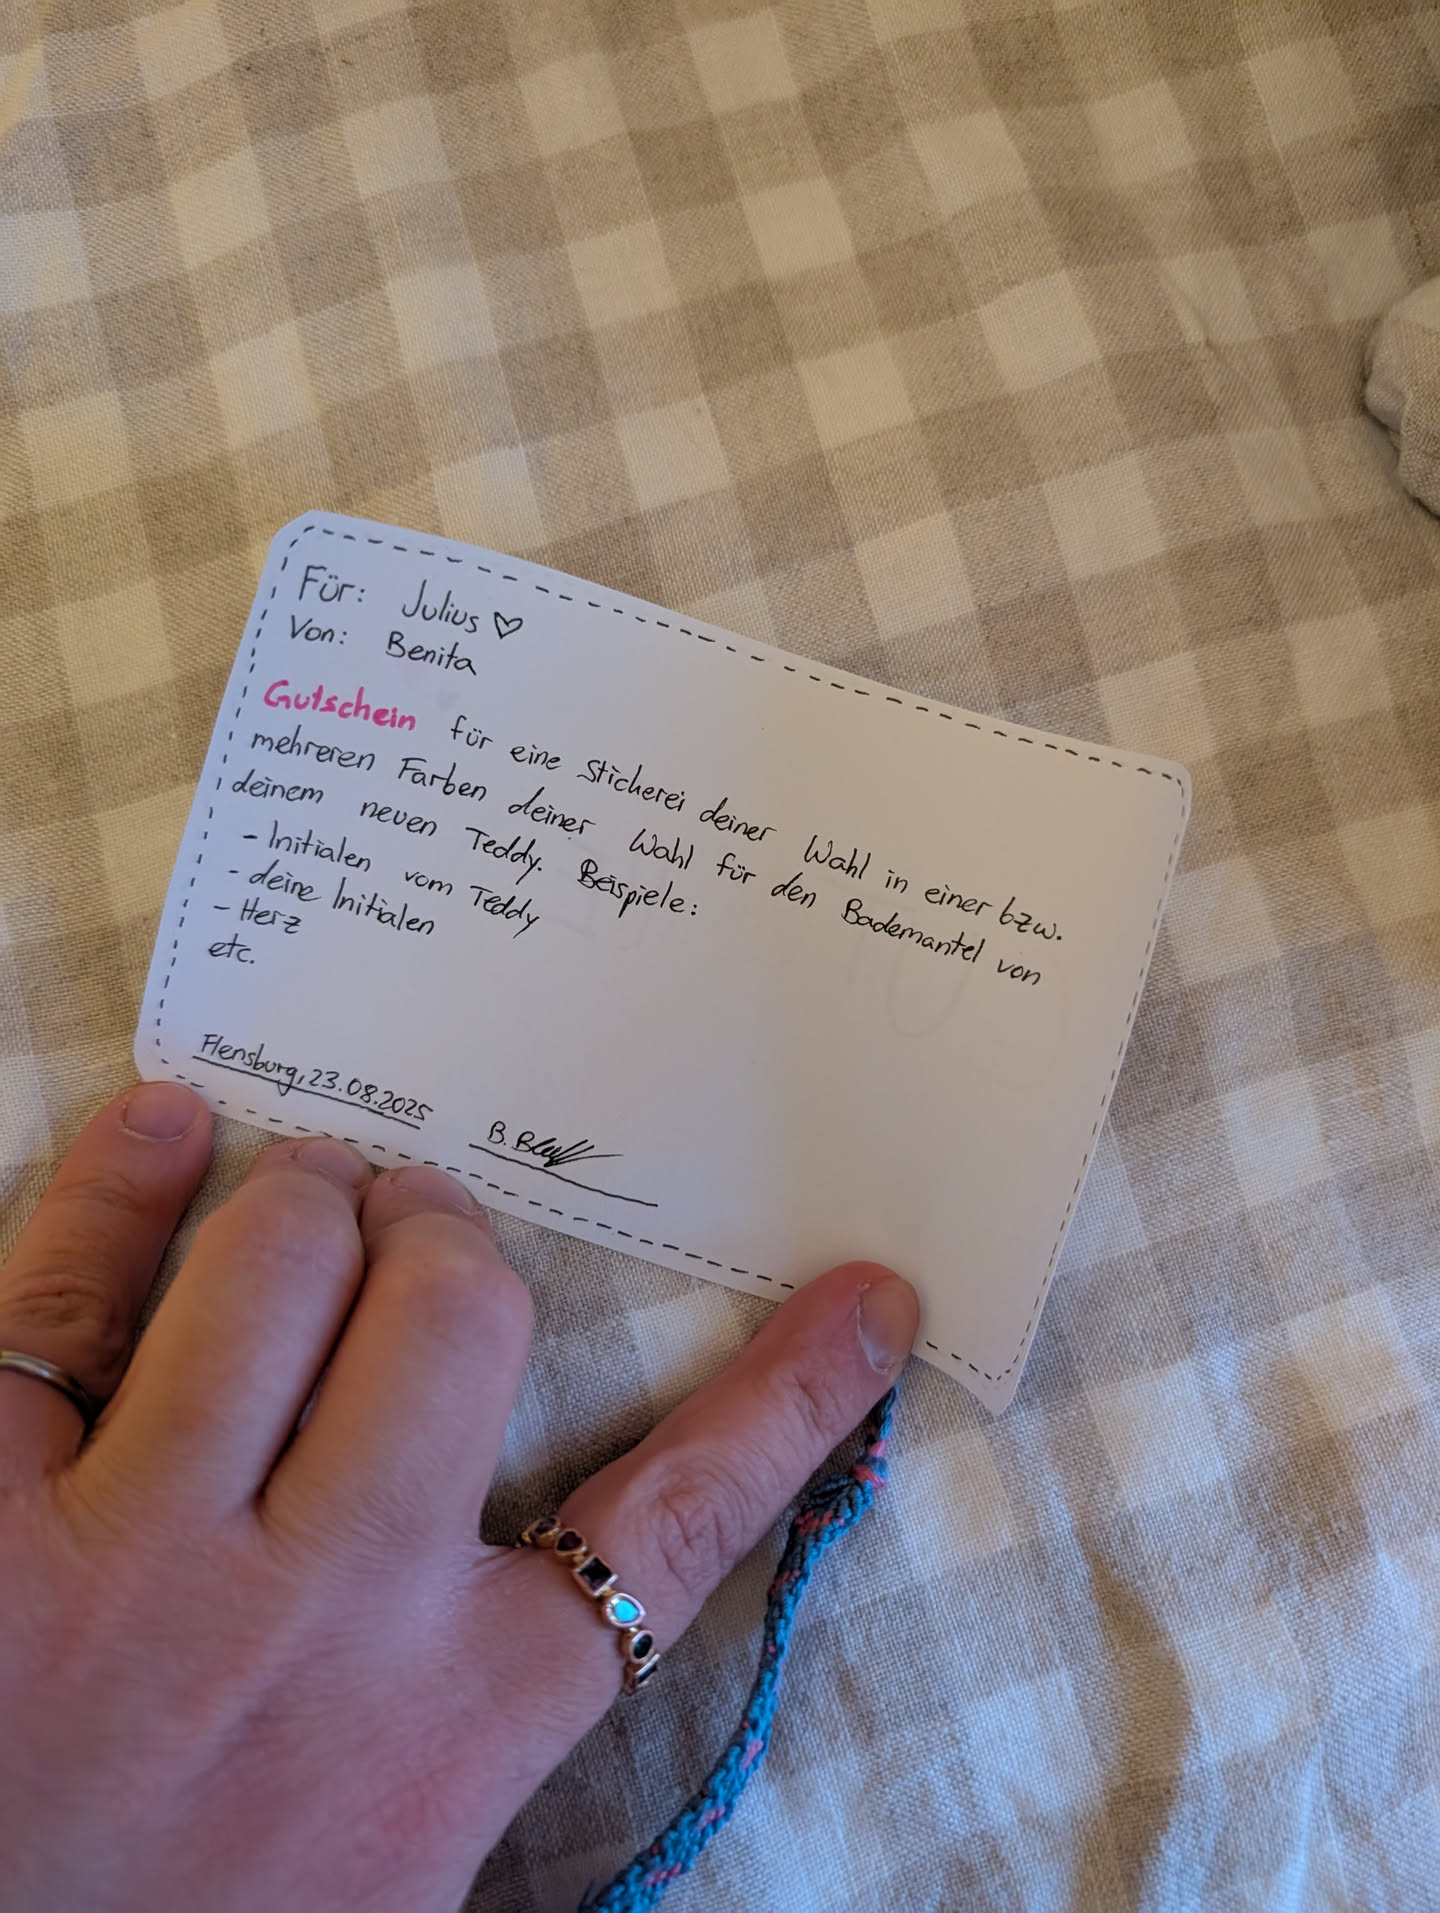 Für: Julius ♡
Von: Benita
Gutschein für eine Stickerei deiner Wahl in einer bzw.
mehreren Farben deiner Wahl für den Bademantel von
deinem neuen Teddy. Beispiele:
- Initialen vom Teddy
- deine Initialen
- Herz
etc.
Flensburg, 23.08.2025
B.